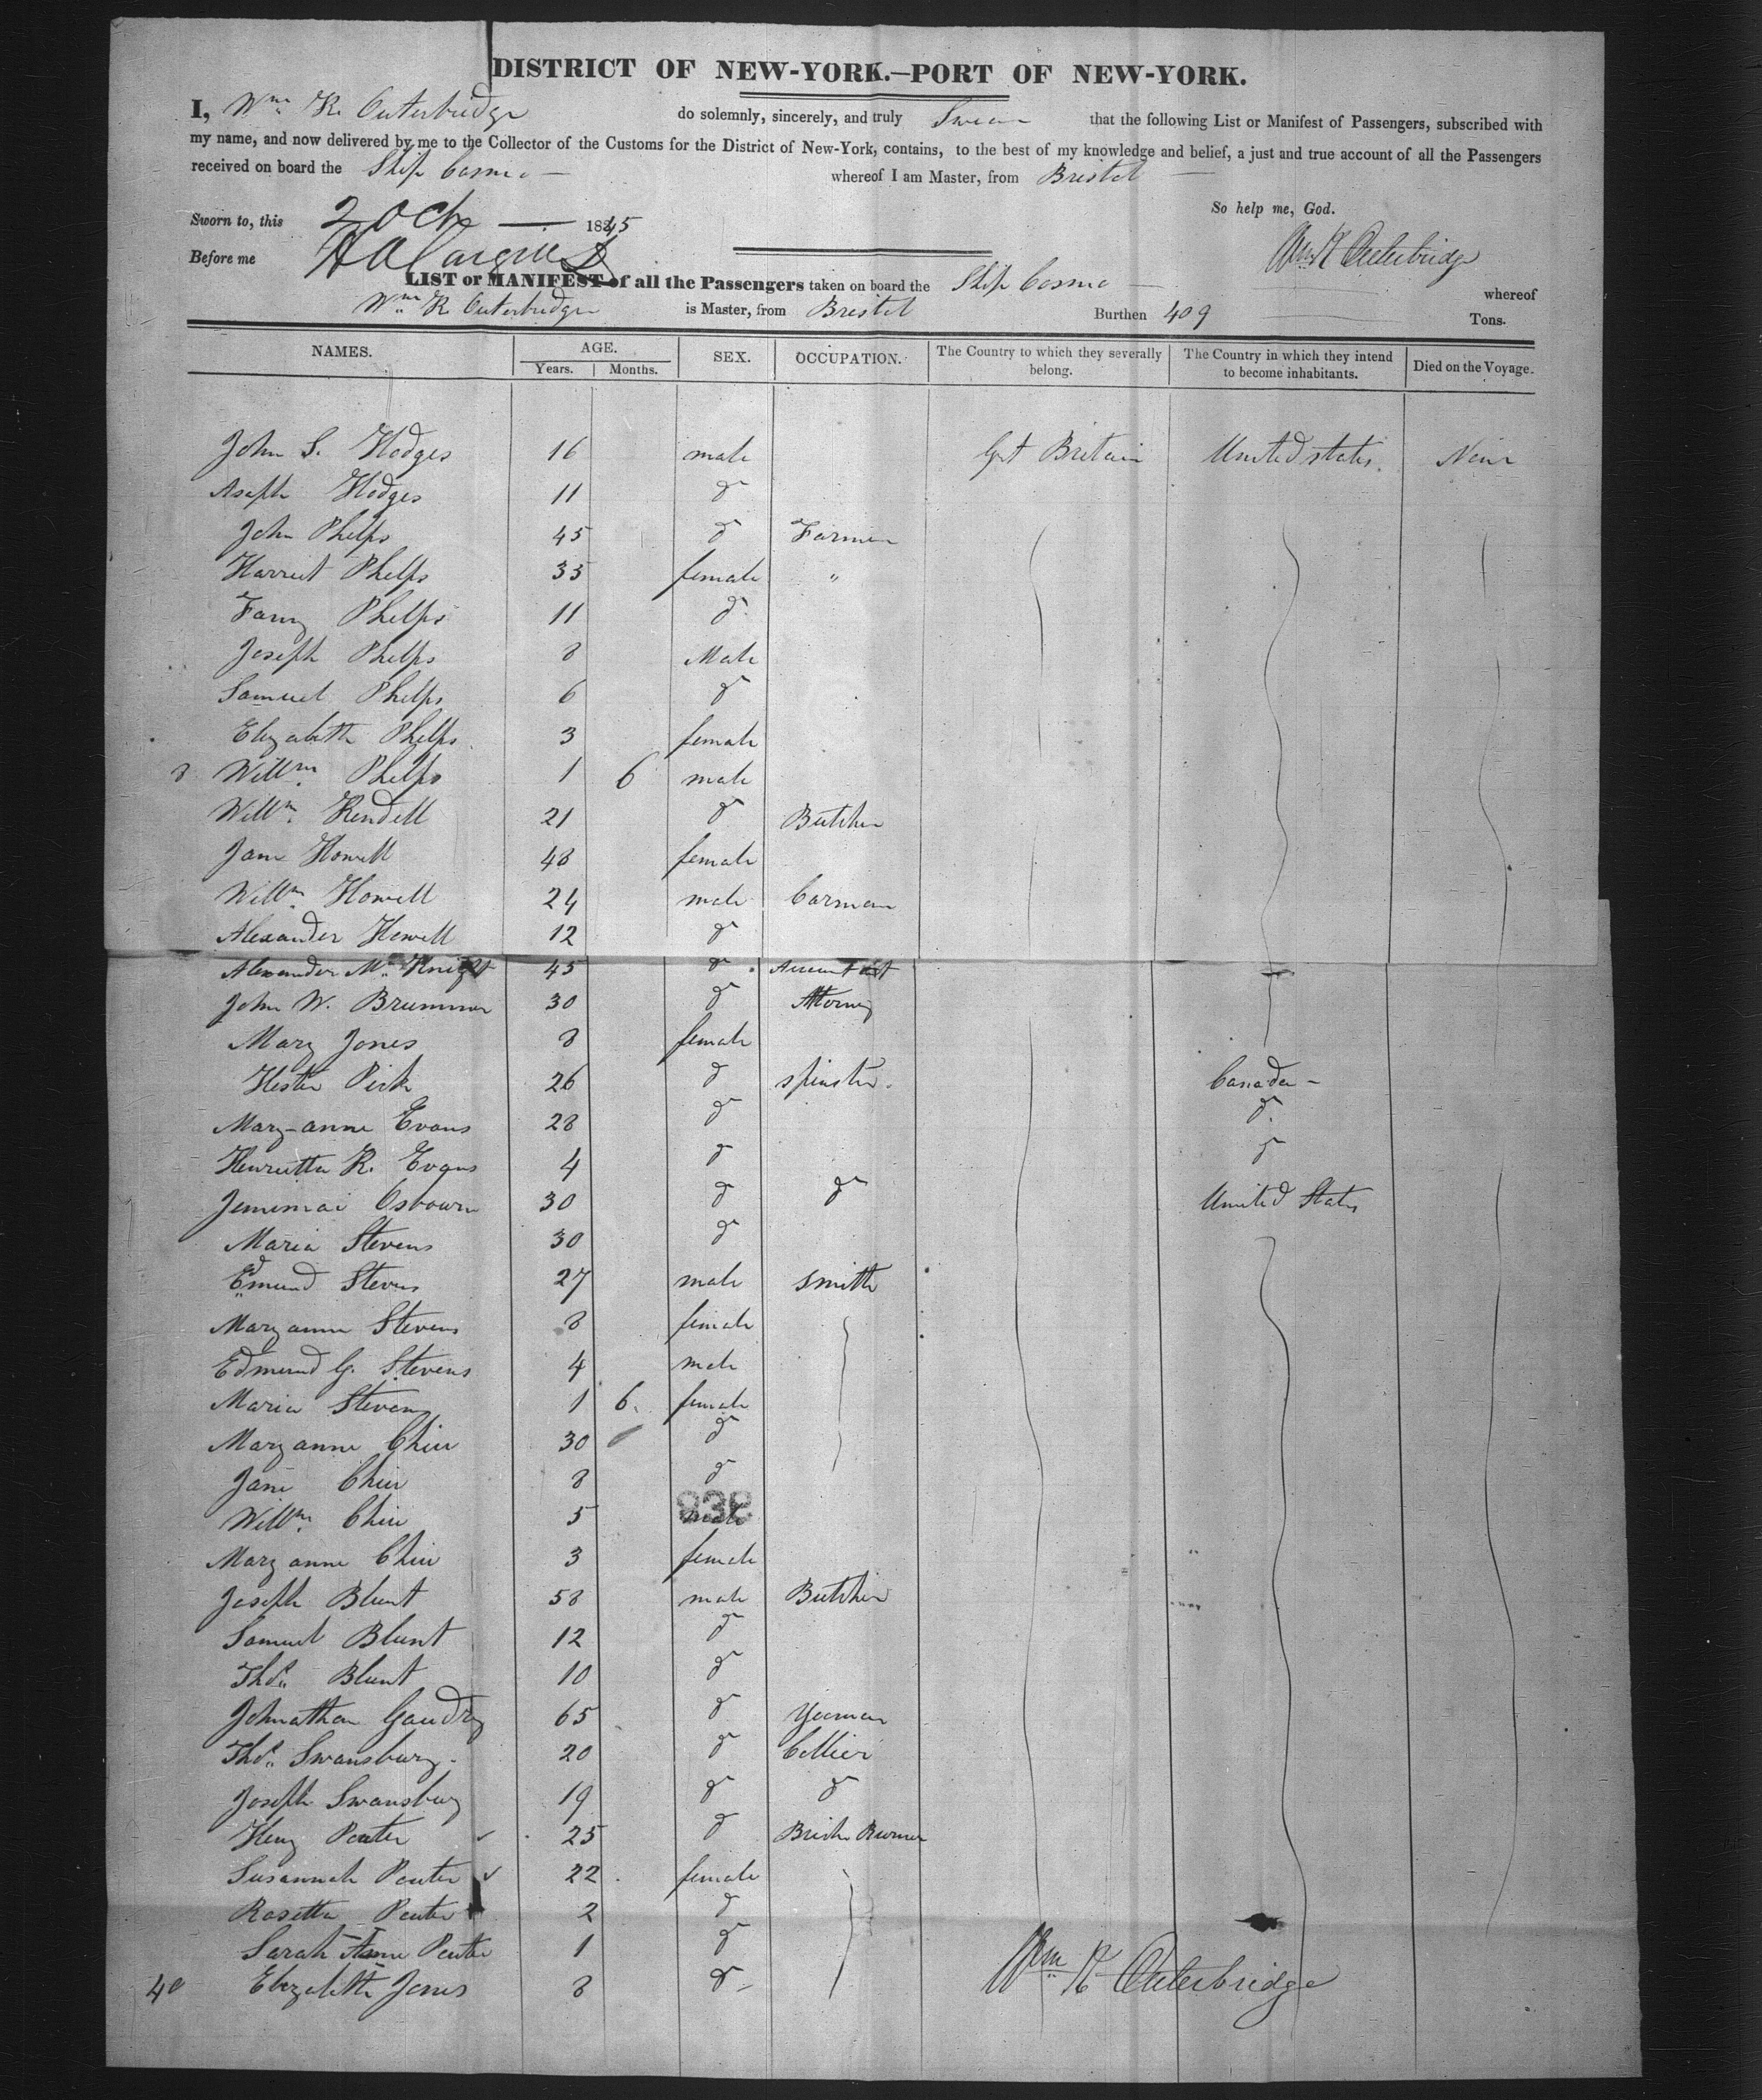 DISTRICT OF NEW-YORK.—PORT OF NEW-YORK.
I, Wm R. Outerbridge do solemnly, sincerely, and truly Swear that the following List or Manifest of Passengers, subscribed with
my name, and now delivered by me to the Collector of the Customs for the District of New-York, contains, to the best of my knowledge and belief, a just and true account of all the Passengers
received on board the Ship Cosmo whereof I am Master, from Bristol
So help me, God.
Sworn to, this 2 Oct 1845
Before me
Wm R Outerbridge
LIST or MANIFEST of all the Passengers taken on board the Ship Cosmo whereof
Wm R Outerbridge is Master, from Bristol Burthen 409 Tons.
NAMES. AGE. Years. Months. SEX. OCCUPATION. The Country to which they severally belong. The Country in which they intend to become inhabitants. Died on the Voyage.
John S. Hodges 16 male Gt Britain United states None
Asaph Hodges 11 do
John Phelps 45 do Farmer
Harriet Phelps 35 female "
Fanny Phelps 11 do
Joseph Phelps 8 Male
Samuel Phelps 6 do
Elizabeth Phelps 3 female
Willm Phelps 1 6 male
Willm Kendell 21 do Butcher
Jane Howell 48 female
Willm Howell 24 male Carman
Alexander Howell 12 do
Alexander Mc Knight 45 do Accountant
John W. Brummer 30 do Attorney
Mary Jones 8 female
Hester Pirk 26 do spinster. Canada
Mary-anne Evans 28 do do
Henrietta R. Evans 4 do do
Jememai Osbourn 30 do do United States
Maria Stevens 30 do
Edmund Stevens 27 male smith
Maryanne Stevens 8 female
Edmund G. Stevens 4 male
Maria Stevens 1 6 female
Maryanne 30 do
Jane 8 do
838
Willm 5 male
Maryanne 3 female
Joseph Blunt 58 male Butcher
Samuel Blunt 12 do
Thos. Blunt 10 do
Johnathan Gaudry 65 do Yeoman
Thos. Swansbury 20 do Collier
Joseph Swansbury 19 do do
Henry Penter 25 do Brick Burner
Susannah Penter 22 female
Rosetta Penter 2 do
Sarah Anne Penter 1 do
40 Elizabeth Jones 8 do
Wm R Outerbridge